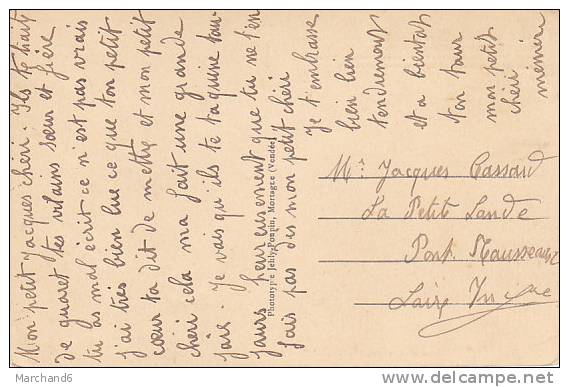 Mon petit Jacques chéri. Ils te haïs
de quaret tes vilains sœur et frère
tu as mal écrit ce n'est pas vrais
j'ai très bien lue ce que ton petit
cœur ta dit de mettre et mon petit
chéri cela ma fait une grande
joie. Je vais qu'ils te taquine tou-
jours heureusement que tu ne t'en
fais pas des mon petit chéri
Je t'embrasse
bien bien
tendrement
et a bientot
ton tour
mon petit
chéri
mémèri
Phototypie Jehly-Poupin, Mortagne (Vendée)
Mr. Jacques Cassard
La Petite Lande
Pont Rousseau
Loire Infre
Marchand6
http://marchand6.delcampe.net